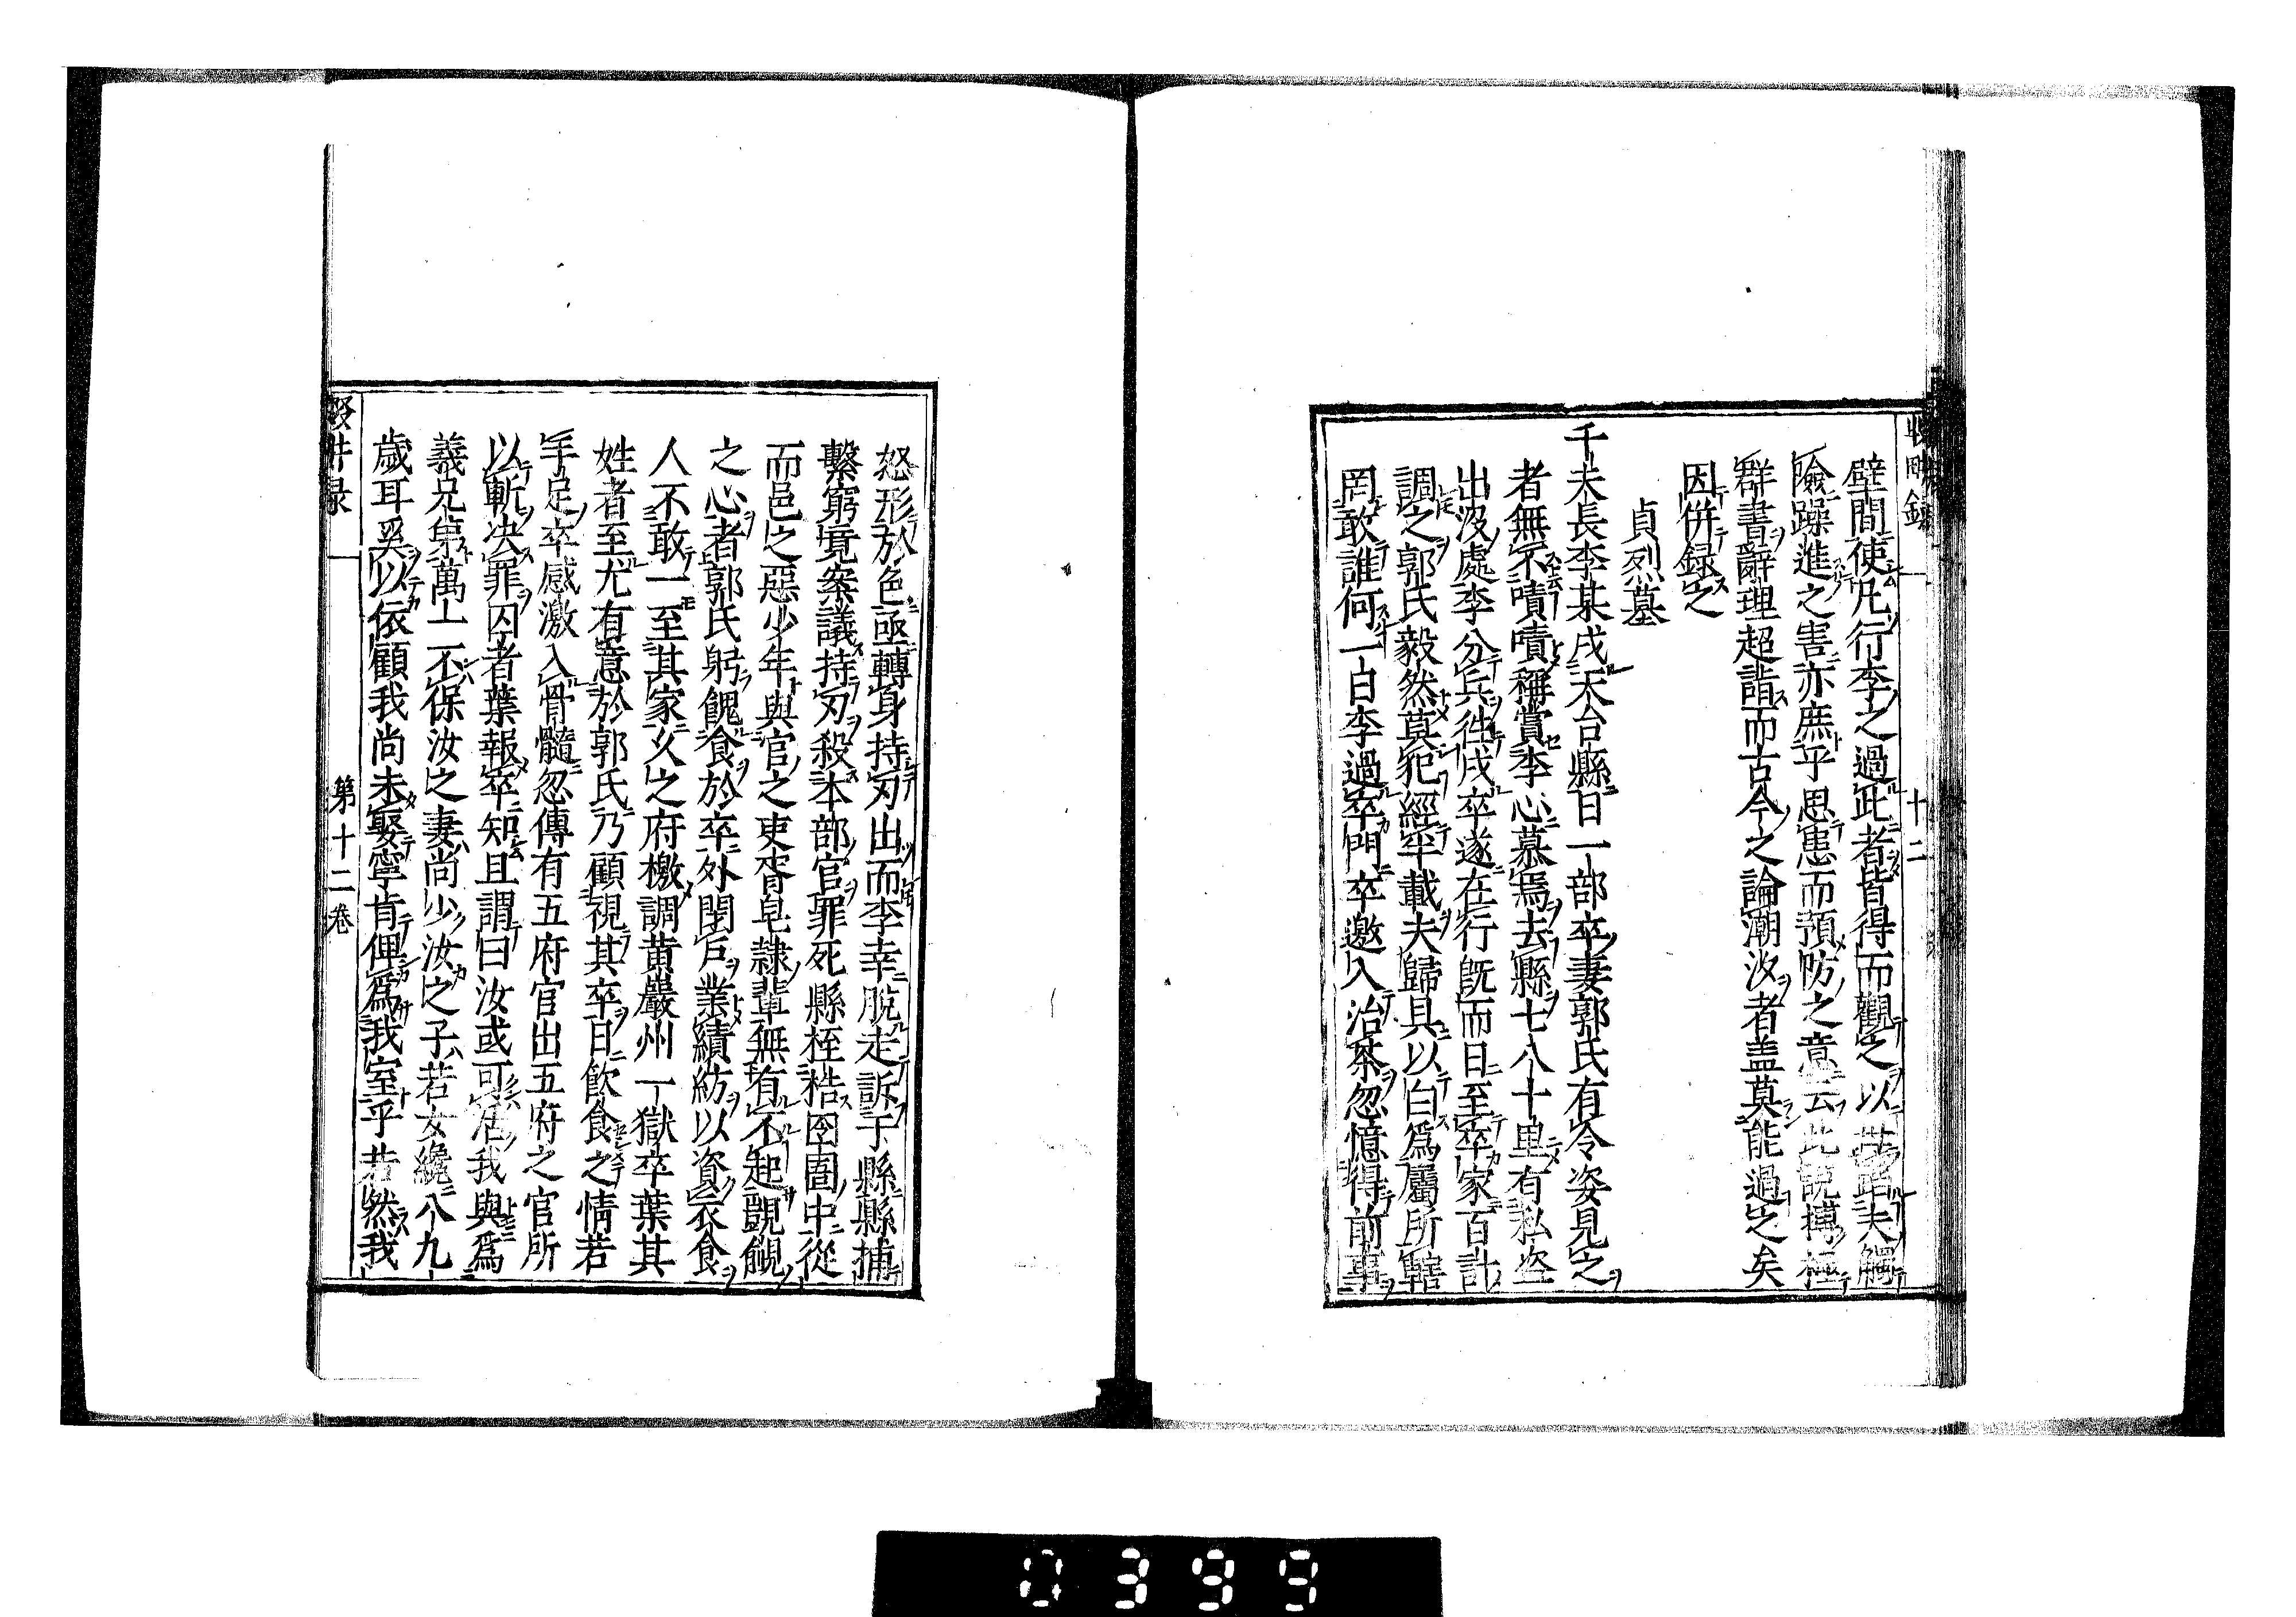 壁間使凡行李之過此者皆得而觀之以苦蹈夫觸
險躁進之害亦庶乎思患而預防之意云此說摶極
群書辭理超詣而古今之論潮汐者盖莫能過之矣
因併録之
貞烈墓
千夫長李某戍天台縣日一部卒妻郭氏有令姿見之
者無不嘖嘖稱賞李心慕焉去縣七八十里有私盗
出沒處李分兵徃戍卒遂在行旣而日至卒家百計
調之郭氏毅然莫犯經半載夫歸具以白爲屬所轄
罔敢誰何一日李過卒門卒邀入治茶忽憶得前事
怒形於色亟轉身持刃出而李幸脫走訴于縣縣捕
繫窮竟案議持刃殺本部官罪死縣桎梏囹圄中從
而邑之惡少年與官之吏胥皂隸輩無有不起覬覦
之心者郭氏躬餽食於卒外閉戶業績紡以資衣食
人不敢一至其家久之府檄調黄巖州一獄卒葉其
姓者至尤有意於郭氏乃顧視其卒日飲食之情若
手足卒感激入骨髓忽傳有五府官出五府之官所
以斬决罪囚者葉報卒知且謂曰汝或可活我與爲
義兄弟萬一不保汝之妻尚少汝之子若女纔八九
歳耳奚以依顧我尚未娶寧肯俾爲我室乎若然我
第十二卷